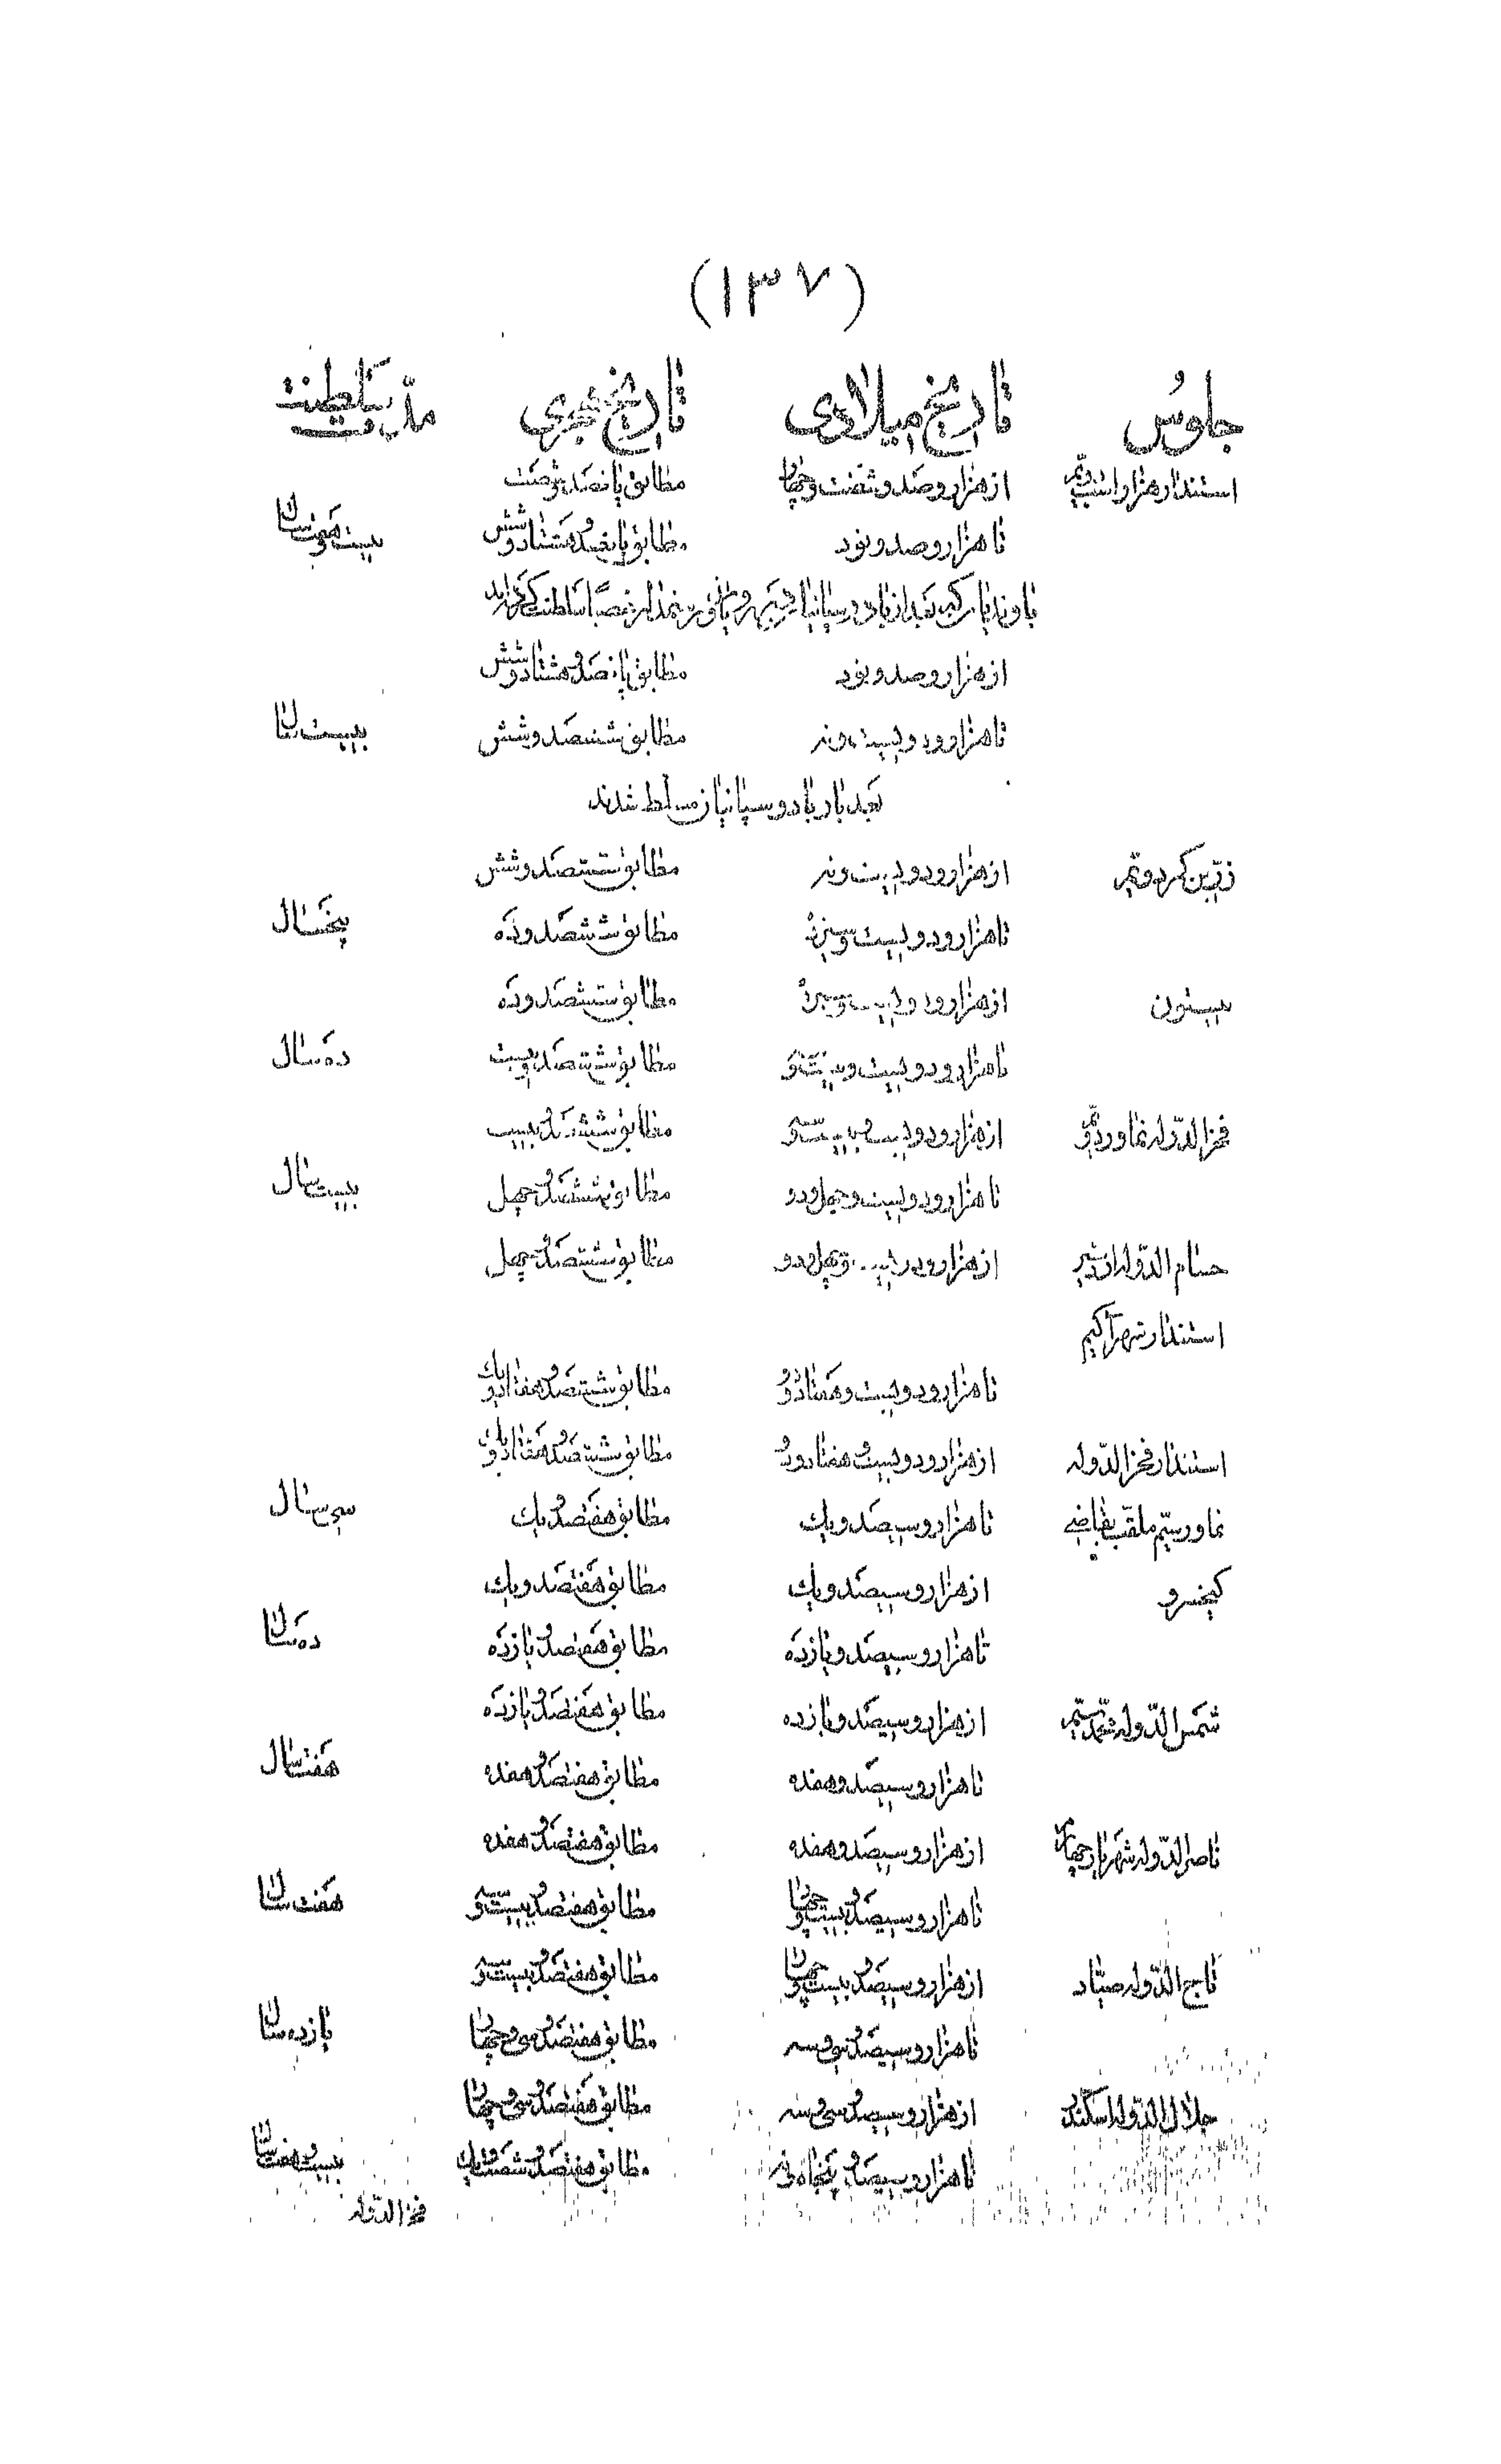 (۱۳۷)
جلوس تاریخ میلادی تاریخ هجری مدّت سلطنت
استندار هزاراسب دویّم از هزار و صد و شصت و چهار مطابق پانصد و شصت
تا هزار و صد و نود مطابق پانصد و هشتاد و شش بیست و هفت سال
باوندیان که بعد از بادوسپانیان
از هزار و صد و نود مطابق پانصد و هشتاد و شش
تا هزار و دویست و نه مطابق ششصد و شش بیست سال
بعد باز بادوسپانیان مسلط شدند
زرّین کمر دویّم از هزار و دویست و نه مطابق ششصد و شش
تا هزار و دویست و سیزده مطابق ششصد و ده پنجسال
بیستون از هزار و دویست و سیزده مطابق ششصد و ده
تا هزار و دویست و بیست و سه مطابق ششصد و بیست ده سال
فخرالدّوله نماور دویّم از هزار و دویست و بیست و سه مطابق ششصد و بیست
تا هزار و دویست و چهل و دو مطابق ششصد و چهل بیست سال
حسام الدّوله اردشیر از هزار و دویست و چهل و دو مطابق ششصد و چهل
استندار شهرآکیم
تا هزار و دویست و هفتاد و دو مطابق ششصد و هفتاد و یک
استندار فخرالدّوله از هزار و دویست و هفتاد و دو مطابق ششصد و هفتاد و یک
نماور سیّم ملقّب بقاضی تا هزار و سیصد و یک مطابق هفتصد و یک سی سال
کیخسرو از هزار و سیصد و یک مطابق هفتصد و یک
تا هزار و سیصد و یازده مطابق هفتصد و یازده ده سال
شمس الدّوله محمّد سیّم از هزار و سیصد و یازده مطابق هفتصد و یازده
تا هزار و سیصد و هفده مطابق هفتصد و هفده هفت سال
ناصرالدّوله شهریار چهارم از هزار و سیصد و هفده مطابق هفتصد و هفده
تا هزار و سیصد و بیست و چهار مطابق هفتصد و بیست و سه هفت سال
تاج الدّوله صیّاد از هزار و سیصد و بیست و چهار مطابق هفتصد و بیست و سه
تا هزار و سیصد و سی و سه مطابق هفتصد و سی و چهار یازده سال
جلال الدّوله اسکندر از هزار و سیصد و سی و سه مطابق هفتصد و سی و چهار
تا هزار و سیصد و پنجاه و نه مطابق هفتصد و شصت و یک بیست و هفت سال
فخرالدّوله